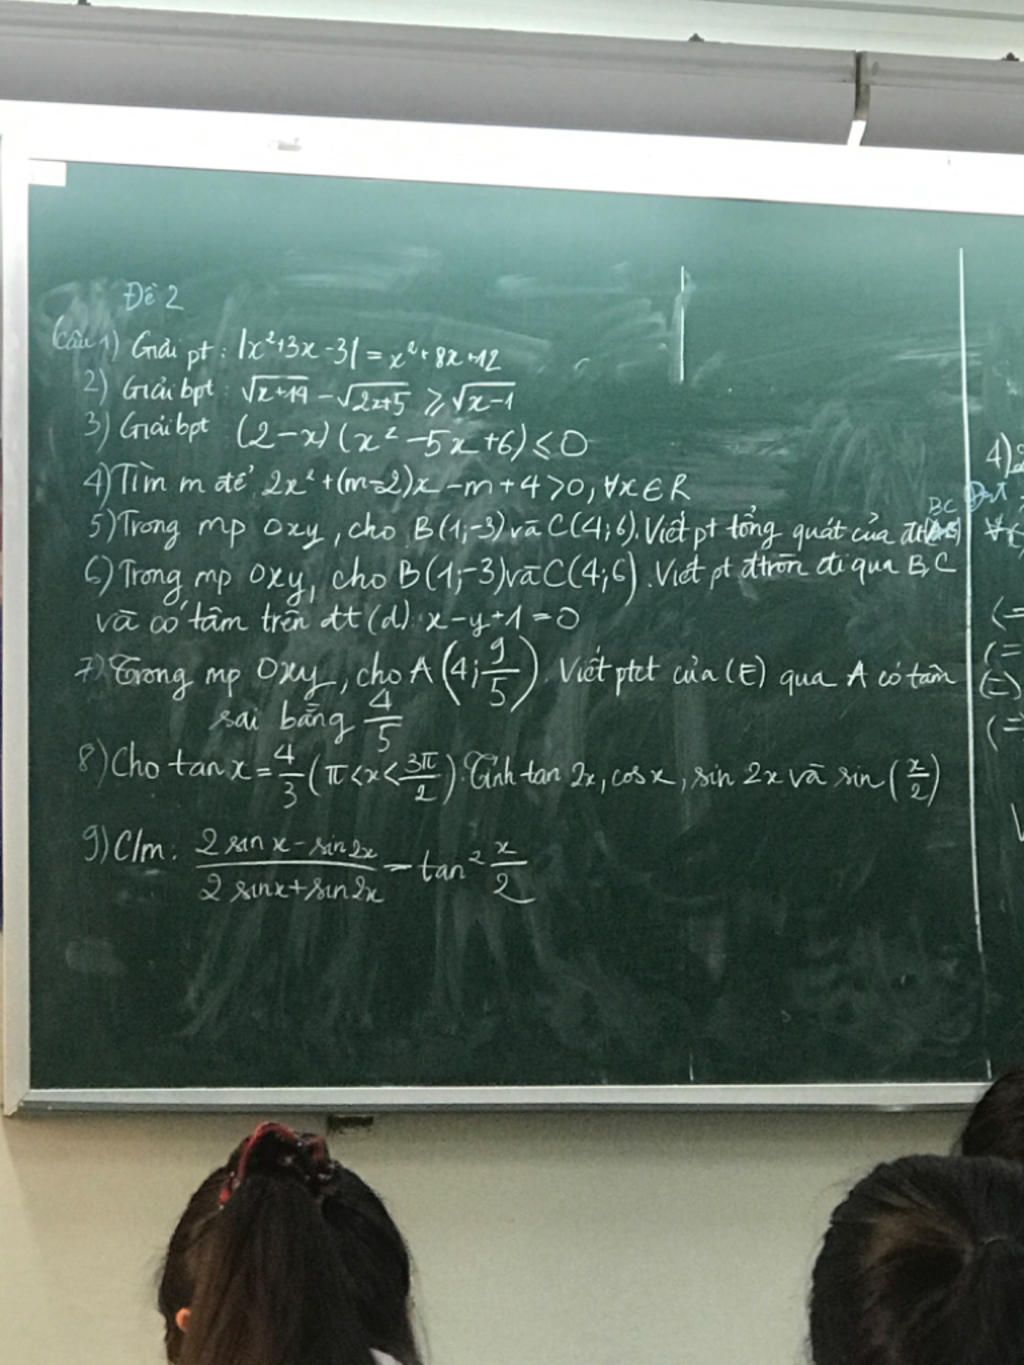 Đề 2
Câu 1) Giải pt: |x²+3x-3| = x²+8x+12
2) Giải bpt: √x+19 - √2x+5 ≥ √x-1
3) Giải bpt (2-x)(x²-5x+6) ≤ 0
4) Tìm m để 2x²+(m-2)x-m+4>0, ∀x∈R
BC
5) Trong mp Oxy, cho B(1;-3) và C(4;6). Viết pt tổng quát của đt
6) Trong mp Oxy, cho B(1;-3) và C(4;6). Viết pt đtròn đi qua B, C
và có tâm trên đt (d): x-y+1=0
7) Trong mp Oxy, cho A(4; 9/5). Viết ptct của (E) qua A có tâm
sai bằng 4/5
8) Cho tan x = 4/3 (π<x<3π/2). Tính tan 2x, cos x, sin 2x và sin (x/2)
9) C/m: 2 sin x - sin 2x / 2 sin x + sin 2x = tan² x/2
4)